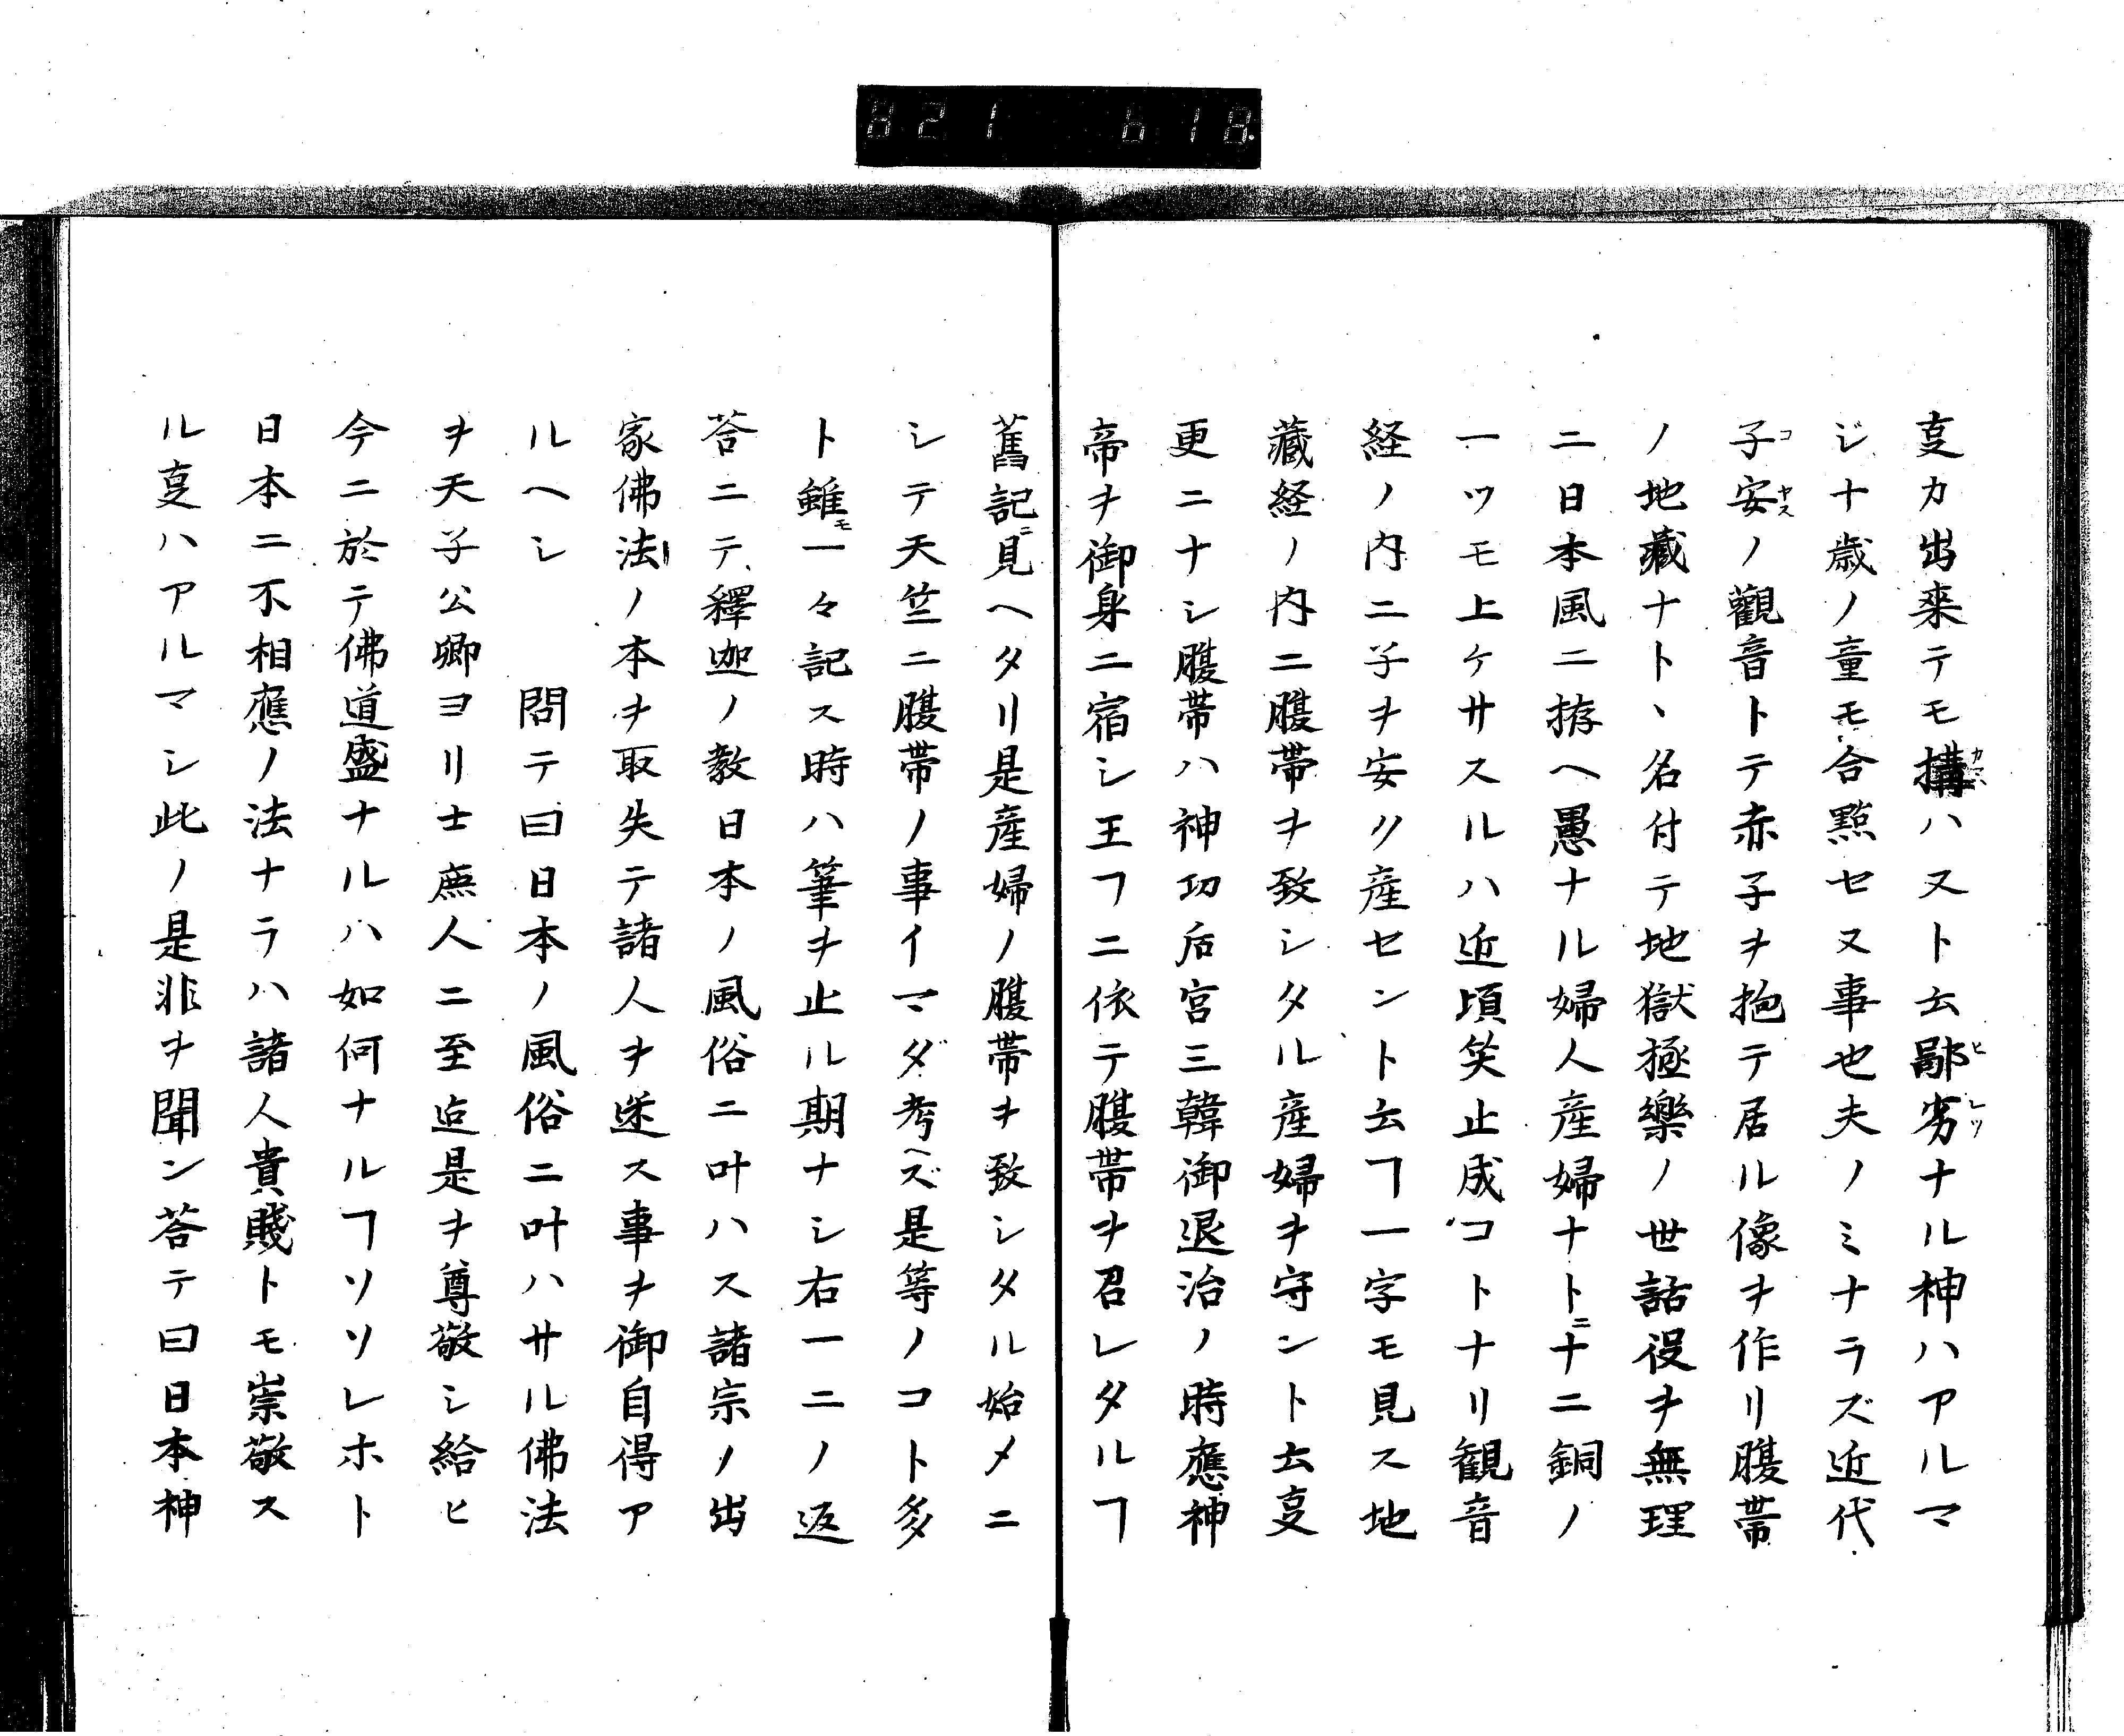 821 618
叓カ出来テモ搆ハスト云鄙劣ナル神ハアルマ
ジナ歳ノ童モ合點セヌ事也夫ノミナラズ近代
子安ノ觀音トテ赤子ヲ抱テ居ル像ヲ作リ腹帯
ノ地藏ナト丶名付テ地獄極樂ノ世話役ヲ無理
ニ日本風ニ拵ヘ愚ナル婦人産婦ナトニ十二銅ノ
一ツモ上ケサスルハ近頃笑止成コトナリ観音
経ノ内ニ子ヲ安ク産セント云ヿ一字モ見ス地
藏経ノ内ニ腹帯ヲ致シタル産婦ヲ守ント云叓
更ニナシ腹帯ハ神功后宮三韓御退治ノ時應神
帝ヲ御身ニ宿シ王フニ依テ腹帯ヲ召レタルヿ
舊記ニ見ヘタリ是産婦ノ腹帯ヲ致シタル始メニ
シテ天竺ニ腹帯ノ事イマダ考ヘズ是等ノコト多
ト雖モ一々記ス時ハ筆ヲ止ル期ナシ右一二ノ返
荅ニテ釋迦ノ教日本ノ風俗ニ叶ハス諸宗ノ出
家佛法ノ本ヲ取失テ諸人ヲ迷ス事ヲ御自得ア
ルヘシ　問テ曰日本ノ風俗ニ叶ハサル佛法
ヲ天子公卿ヨリ士庶人ニ至迠是ヲ尊敬シ給ヒ
今ニ於テ佛道盛ナルハ如何ナルヿソソレホト
日本ニ不相應ノ法ナラハ諸人貴賤トモ崇敬ス
ル叓ハアルマシ此ノ是非ヲ聞ン荅テ曰日本神